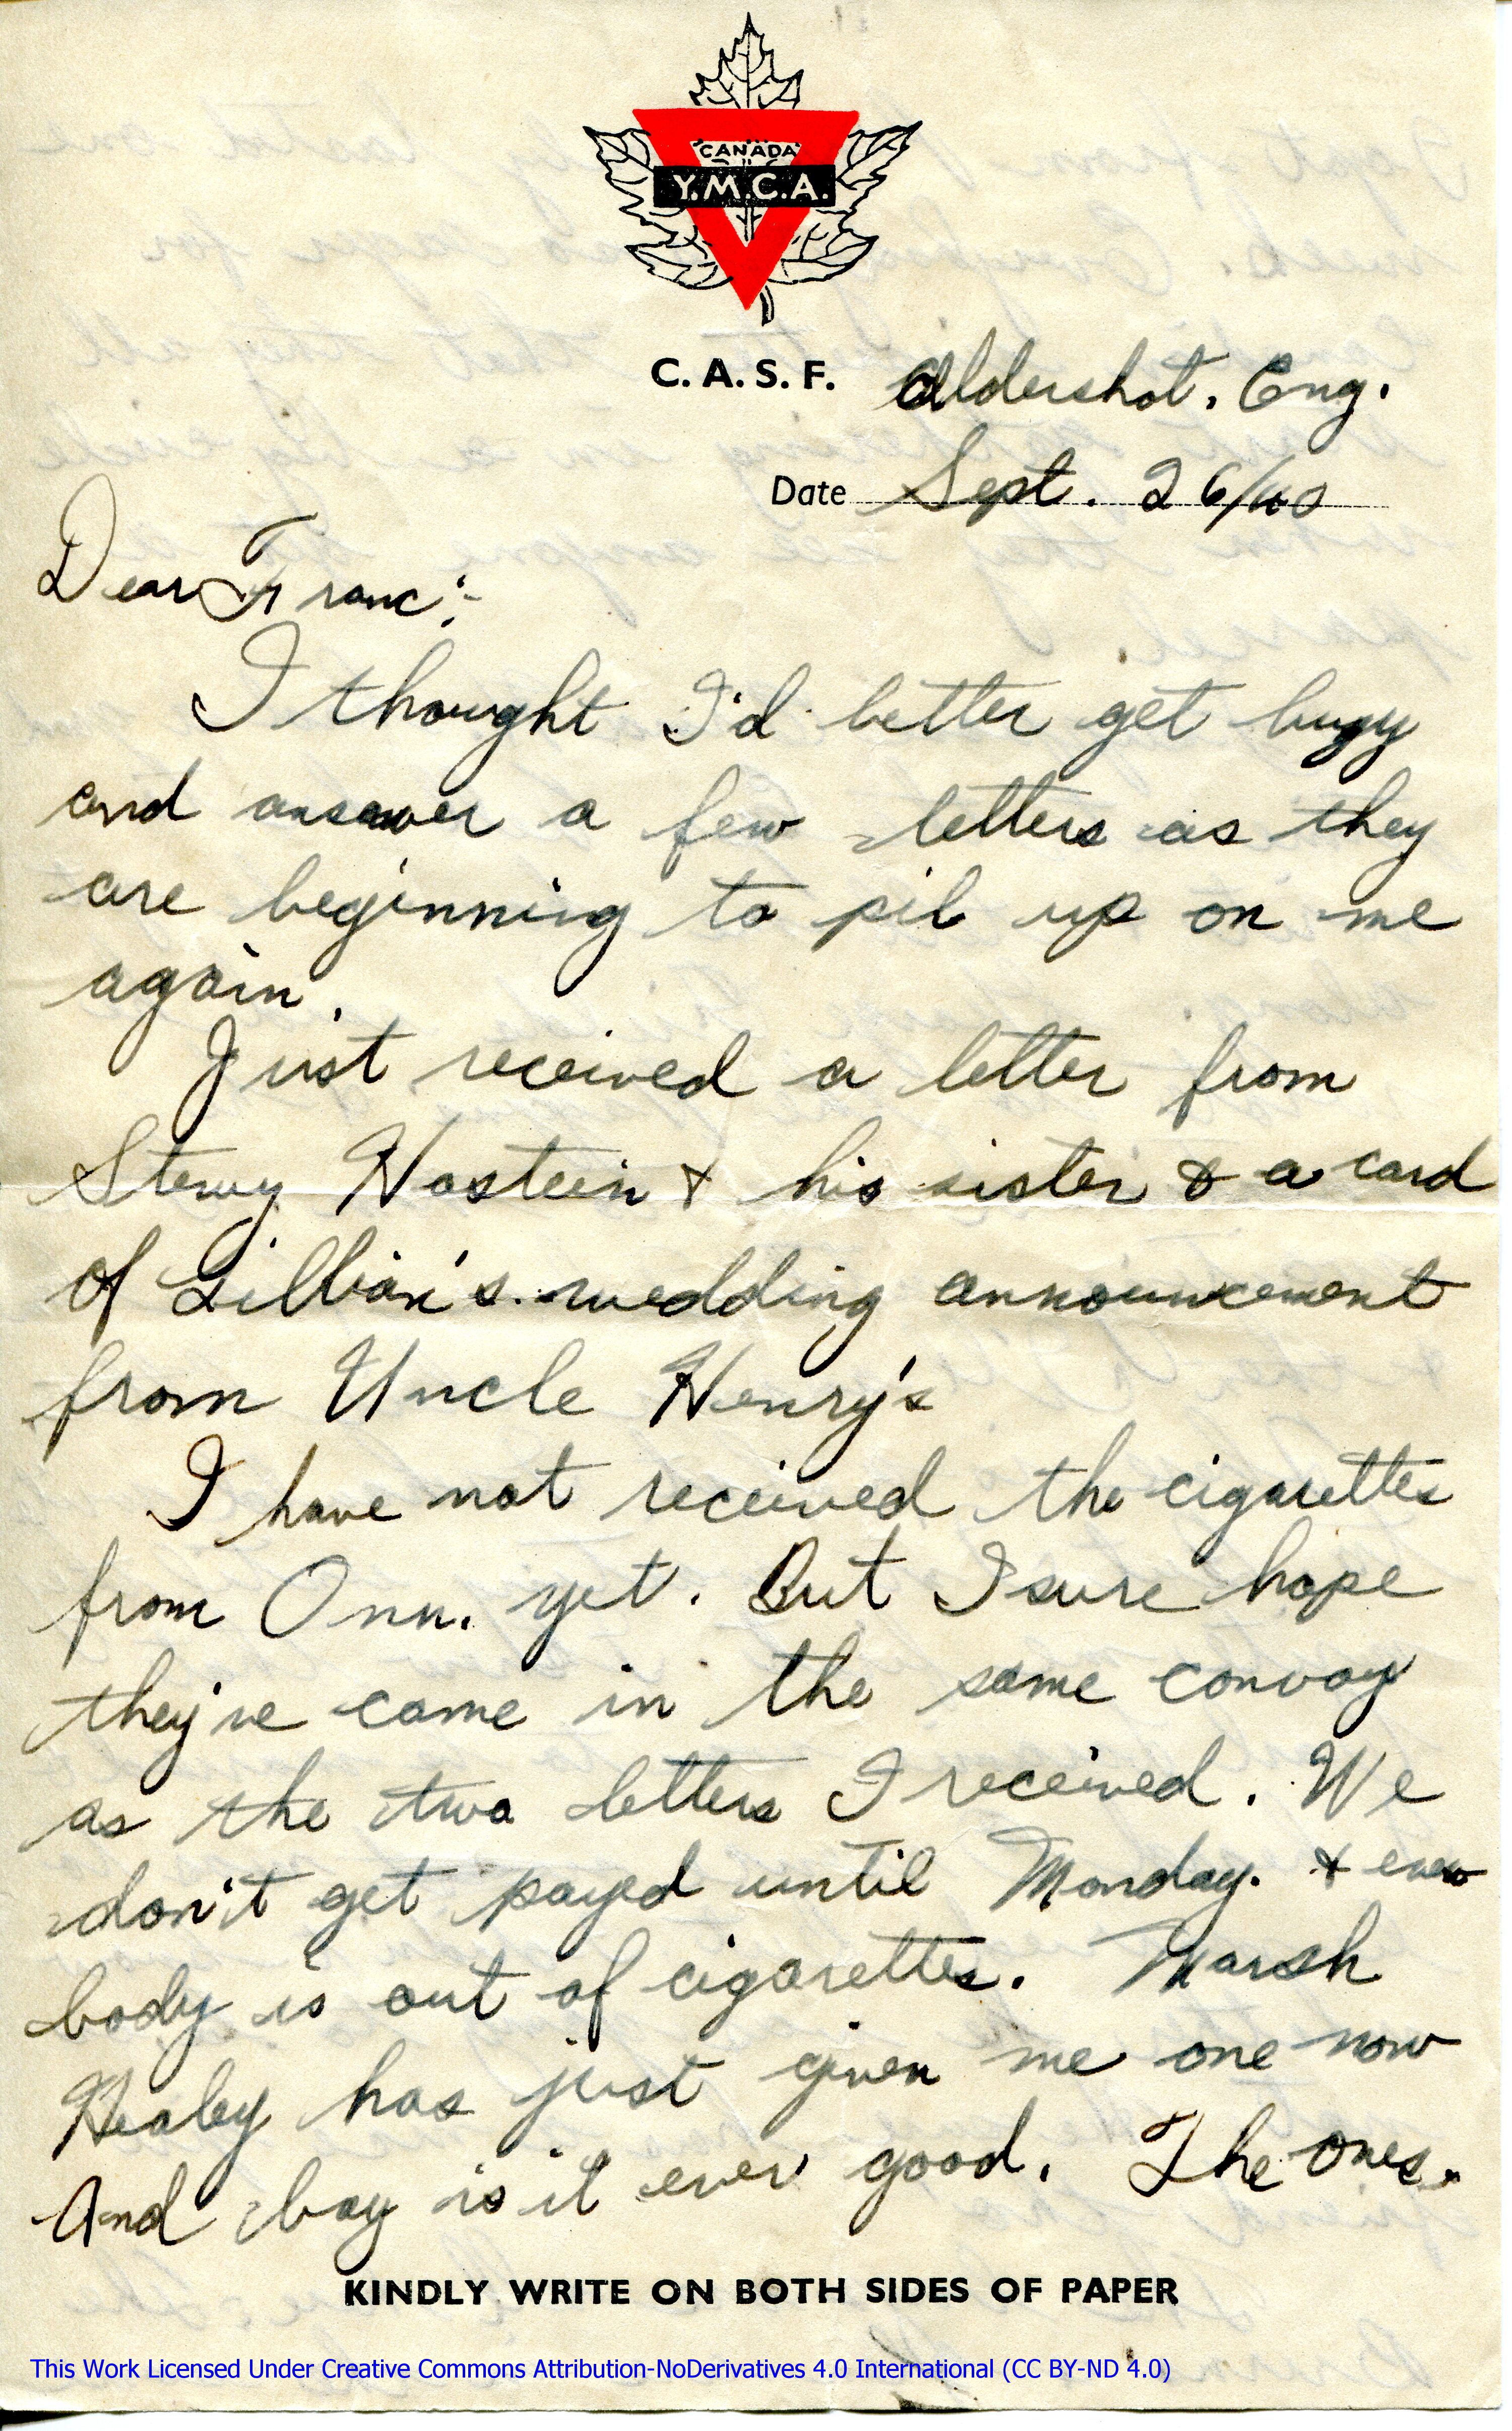 CANADA
Y.M.C.A.
C. A. S. F. Aldershot, Eng.
Date Sept. 26/40
Dear Franc:-
I thought I'd better get busy
and answer a few letters as they
are beginning to pil up on me
again.
Just received a letter from
Stewy Hostein & his sister & a card
of Lillian's wedding announcement
from Uncle Henry's
I have not received the cigarettes
from Onn. yet. But I sure hope
they've come in the same convoy
as the two letters I received. We
don't get payed until Monday. & every
body is out of cigarettes. Marsh
Healey has just given me one now
And boy is it ever good. The ones
KINDLY WRITE ON BOTH SIDES OF PAPER
This Work Licensed Under Creative Commons Attribution-NoDerivatives 4.0 International (CC BY-ND 4.0)